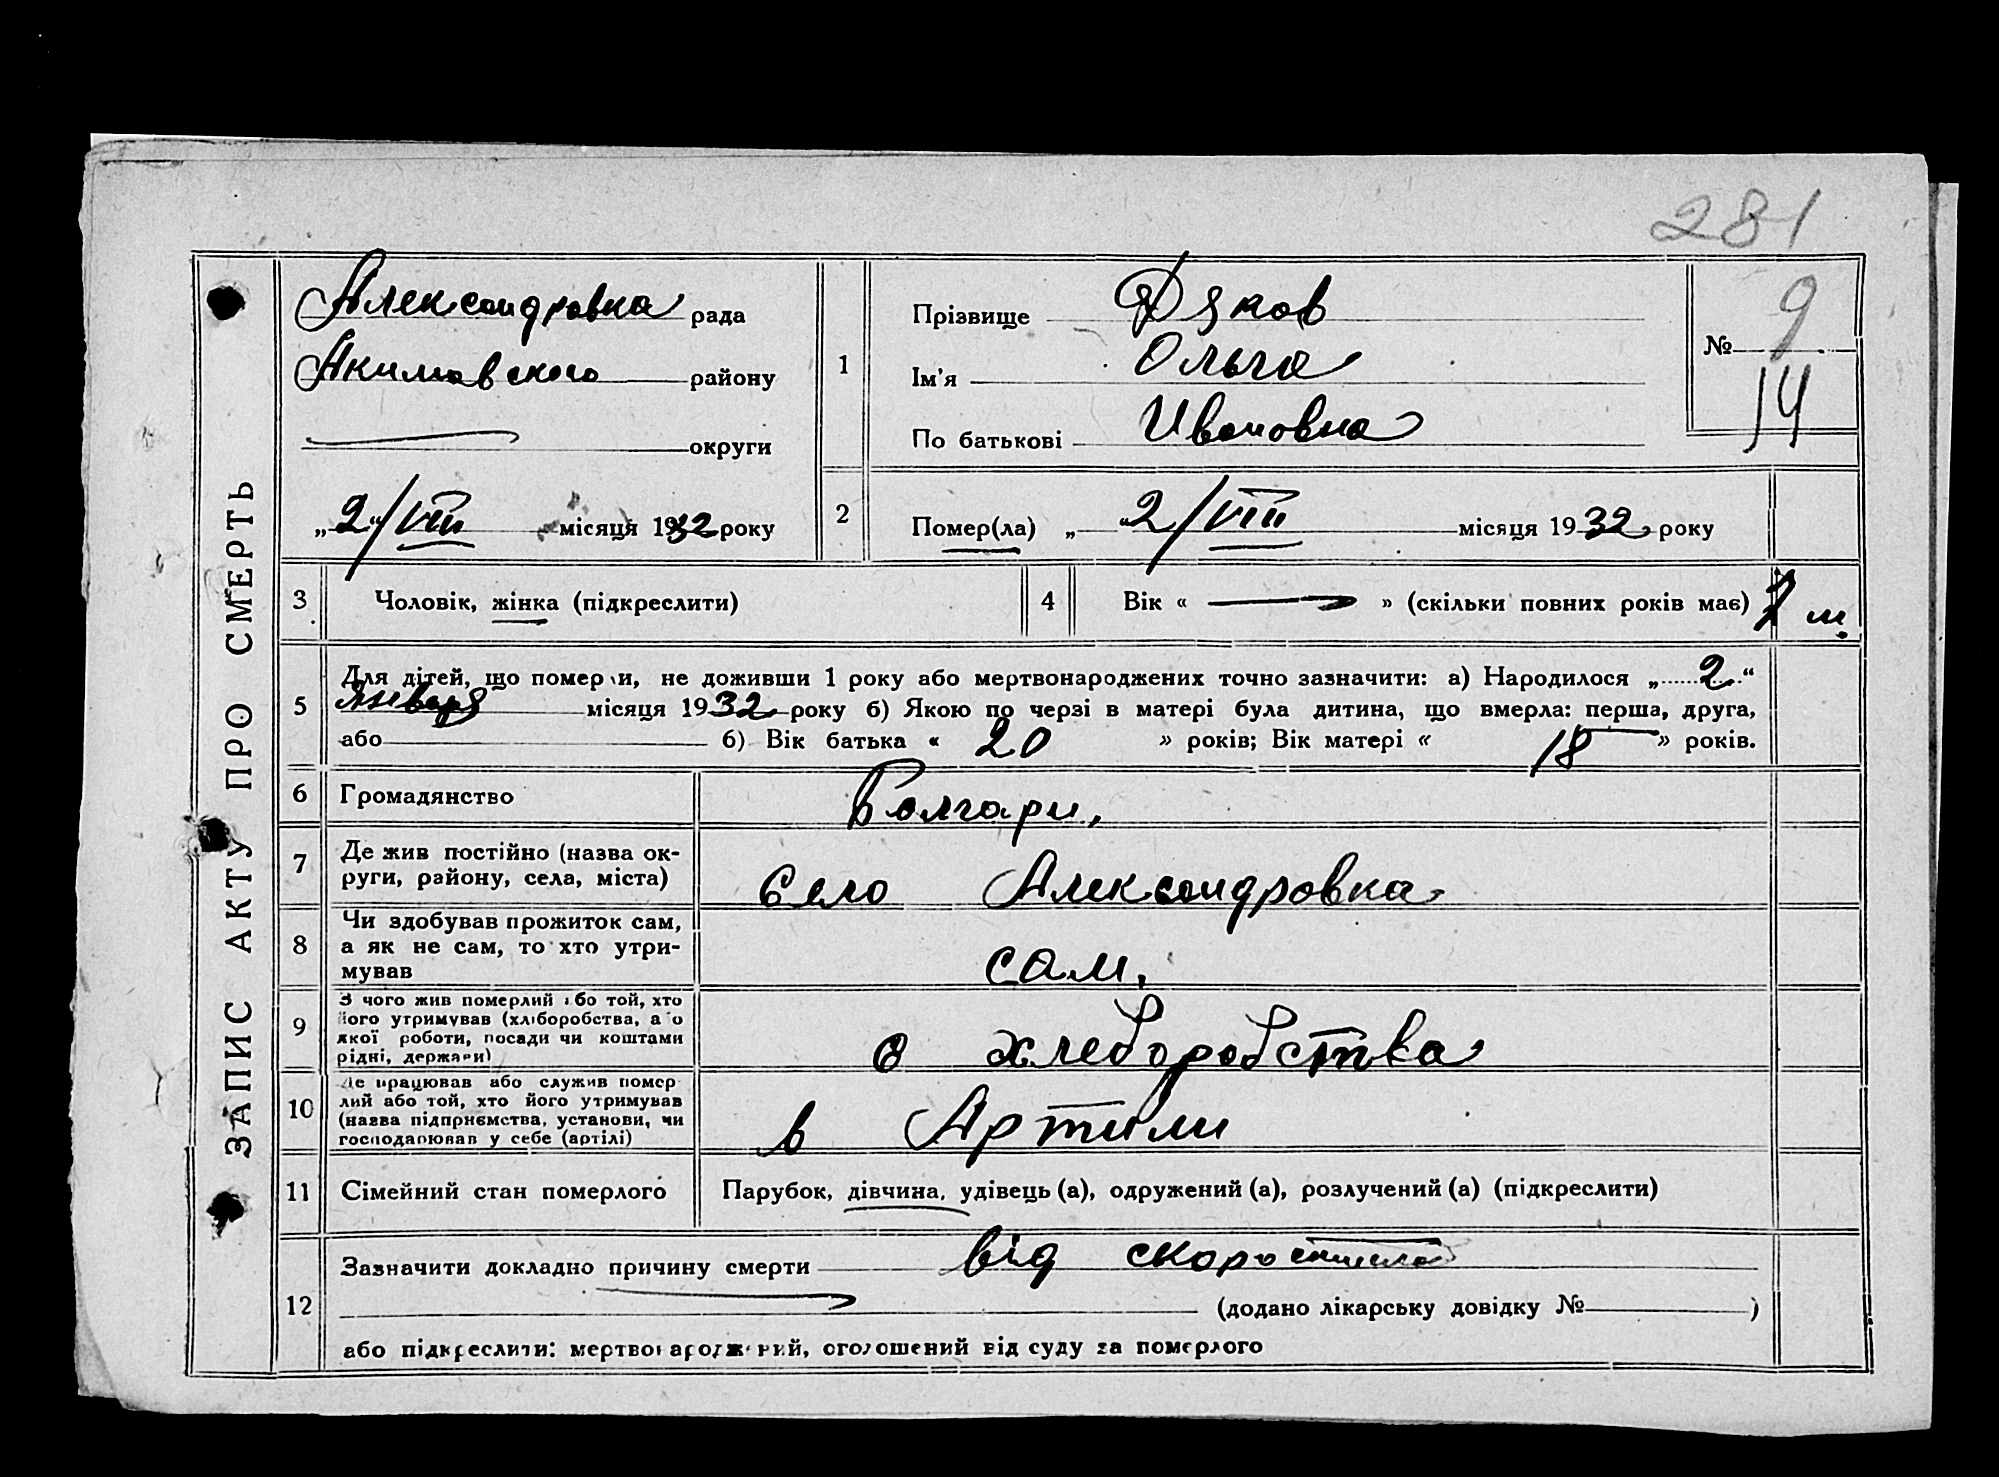 281
ЗАПИС АКТУ ПРО СМЕРТЬ
Александровка рада
Акимовского району
округи
„2"/VIII місяця 1932 року
1
Прізвище Дяков
Ім'я Ольга
По батькові Ивановна
№ 9
14
2
Помер(ла) „2"/VIII місяця 1932 року
3 Чоловік, жінка (підкреслити)
4 Вік « — » (скільки повних років має) м.
5 Для дітей, що померли, не доживши 1 року або мертвонароджених точно зазначити: а) Народилося „2“
января місяця 1932 року б) Якою по черзі в матері була дитина, що вмерла: перша, друга,
або б) Вік батька « 20 » років; Вік матері « 18 » років.
6 Громадянство Болгари,
7 Де жив постійно (назва ок-
руги, району, села, міста) Село Александровка
8 Чи здобував прожиток сам,
а як не сам, то хто утри-
мував сам,
9 З чого жив померлий або той, хто
його утримував (хліборобства, або
якої роботи, посади чи коштами
рідні, держави) з хлеборобства
10 Де працював або служив помер
лий або той, хто його утримував
(назва підприємства, установи, чи
господарював у себе (артілі) в Артили
11 Сімейний стан померлого Парубок, дівчина, удівець (а), одружений (а), розлучений (а) (підкреслити)
12 Зазначити докладно причину смерти від
(додано лікарську довідку № )
або підкреслити: мертвонароджений, оголошений від суду за померлого